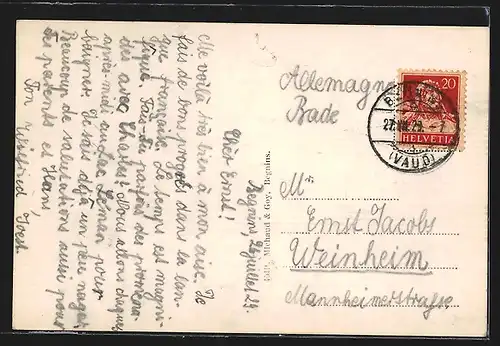 Begnins 26 juillet 29.
Cher Ernst!
Me voilà très bien à mon aise. Je
fais de bons progrès dans la lan-
gue française. Le temps est magni-
fique. Fais-tu parfois des promena-
des avec Charles? Nous allons chaque
après-midi au lac Léman pour
baigner. Je sais déjà un peu nager.
Beaucoup de salutations aussi pour
tes parents et Hans,
Ton Winfried Joest.
4516. Michaud & Gay, Begnins.
Allemagne
Bade
20
HELVETIA
(VAUD)
Mr
Ernst Jacobs
Weinheim
Mannheimerstrasse